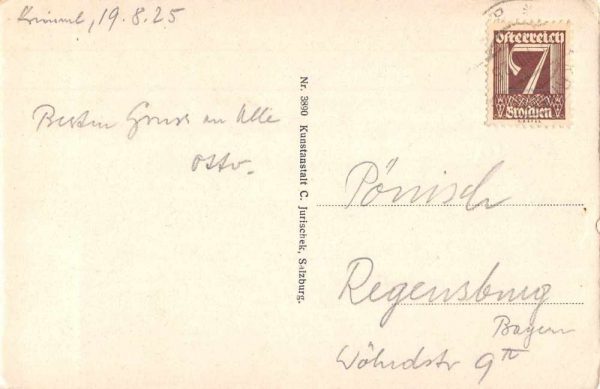 Krimml, 19.8.25
Besten Gruss an Alle
Otto.
Nr. 3890 Kunstanstalt C. Jurischek, Salzburg.
Österreich
7
Groschen
Pönisch
Regensburg
Bayern
Wöhrdstr 9 II